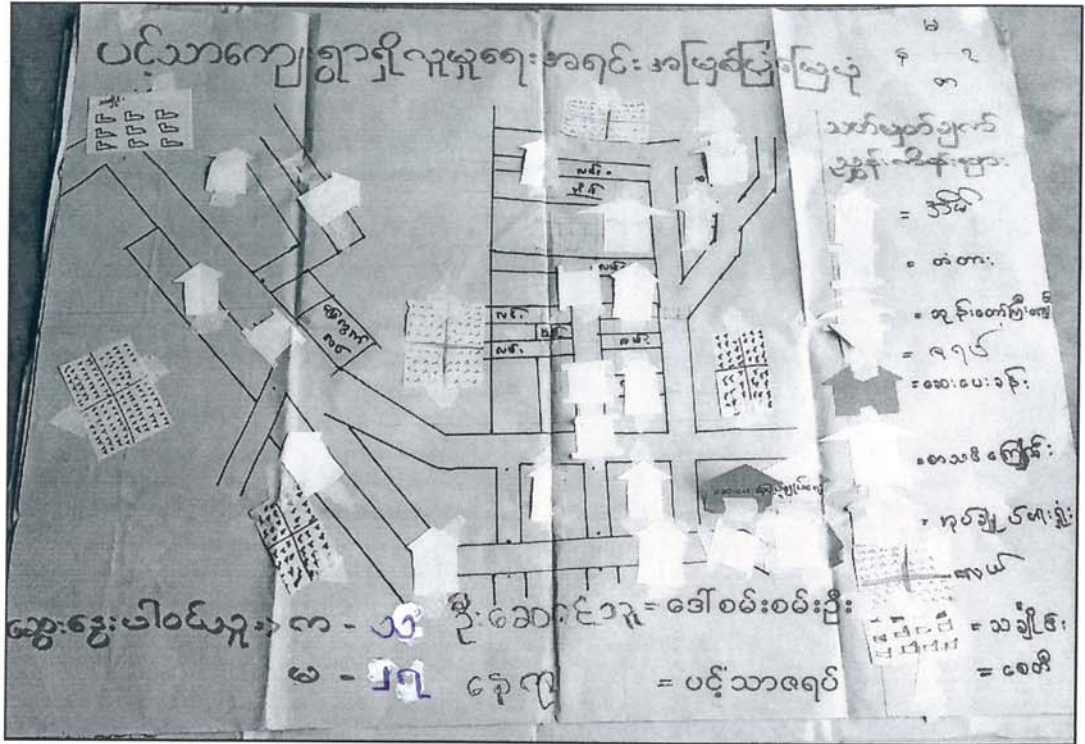 ပင့်သာကျေးရွာရှိလူမှုရေးအရင်းအမြစ်ပြမြေပုံ
မ
န
တ
သတ်မှတ်ချက်
ညွှန်းကိန်းများ
= အိမ်
= တံတား
= ဘုန်းတော်ကြီးကျောင်း
= ဇရပ်
= ဆေးပေးခန်း
= စာသင်ကျောင်း
= အုပ်ချုပ်ရေးရုံး
လယ်
= သချိုင်း
= စေတီ
လမ်း
လမ်း
လမ်း
လမ်း
လမ်း
ဆွေးနွေးပါဝင်သူ => က - ၁၁ ဦးဆောင်သူ = ဒေါ်စမ်းစမ်းဦး
မ - ၂၅ နေရာ = ပင့်သာဇရပ်